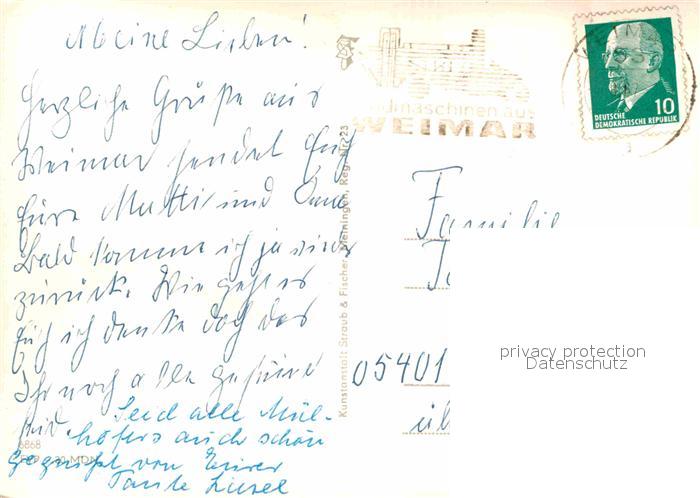 Meine Lieben!
Herzliche Grüße aus
Weimar sendet Euch
Eure Mutti und Oma
Bald komme ich ja wieder
zurück. Wie geht es
Euch ich denke doch das
Ihr noch alle gesund
seid. Seid alle Mül-
höfers auch schön
gegrüßt von Eurer
Tante Liesel
maschinen aus
WEIMAR
DEUTSCHE
DEMOKRATISCHE REPUBLIK
10
Kunstanstalt Straub & Fischer, Meiningen, Reg.
23
Familie
05401
privacy protection
Datenschutz
6868
MDN